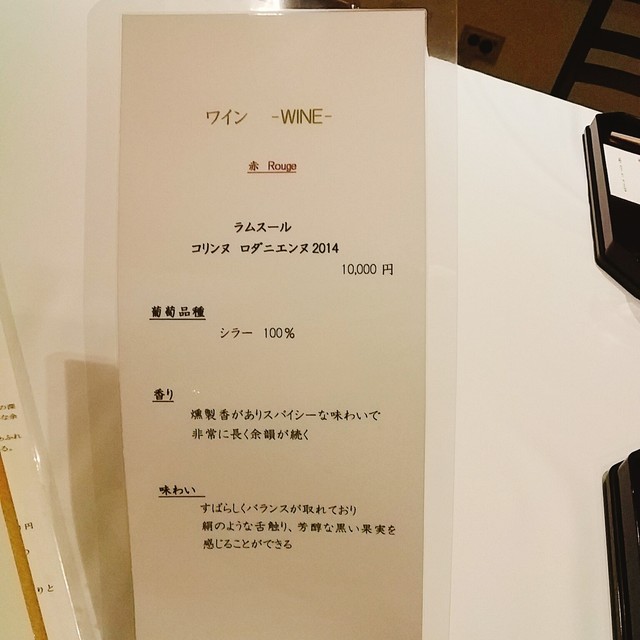 ワイン -WINE-
赤 Rouge
ラムスール
コリンヌ ロダニエンヌ2014
10,000 円
葡萄品種
シラー 100%
香り
燻製香がありスパイシーな味わいで
非常に長く余韻が続く
味わい
すばらしくバランスが取れており
絹のような舌触り、芳醇な黒い果実を
感じることができる